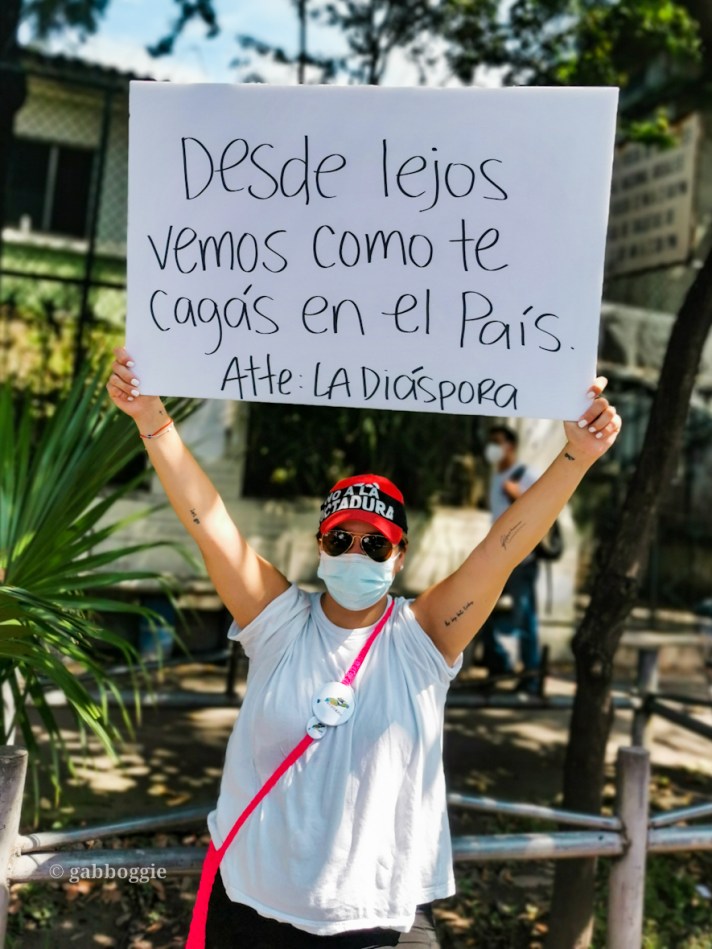 Desde lejos
vemos como te
cagás en el País.
Atte: LA DIáSPORA
NO A LA
DICTADURA
© gabboggie